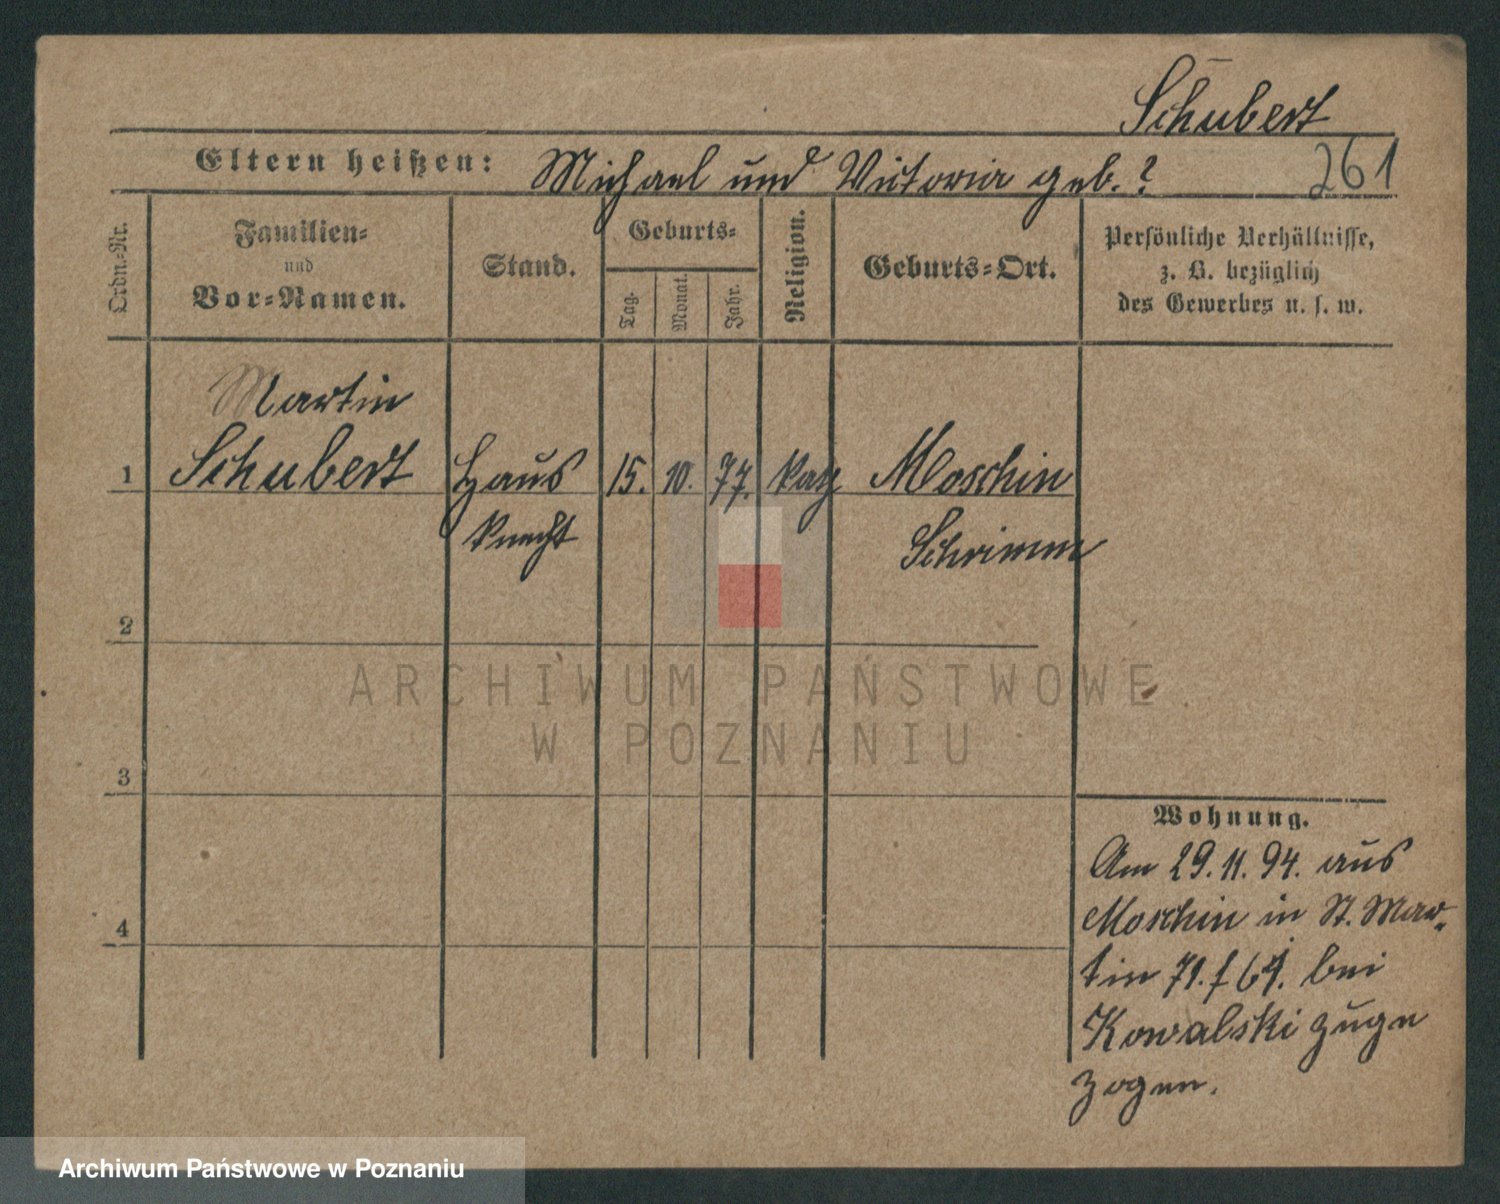 Schubert
Eltern heißen: Michael und Victoria geb. ?
261
Ordn.-Nr.
Familien-
und
Vor-Namen.
Stand.
Geburts-
Tag.
Monat.
Jahr.
Religion.
Geburts-Ort.
Persönliche Verhältnisse,
z. B. bezüglich
des Gewerbes u. s. w.
Martin
1 Schubert Haus 15. 10. 77. kath Moschin
knecht Schrimm
2
3
4
Wohnung.
Am 29. 11. 94. aus
Moschin in St. Mar-
tin 71. bei
Kowalski zuge
zogen.
ARCHIWUM PAŃSTWOWE
W POZNANIU
Archiwum Państwowe w Poznaniu